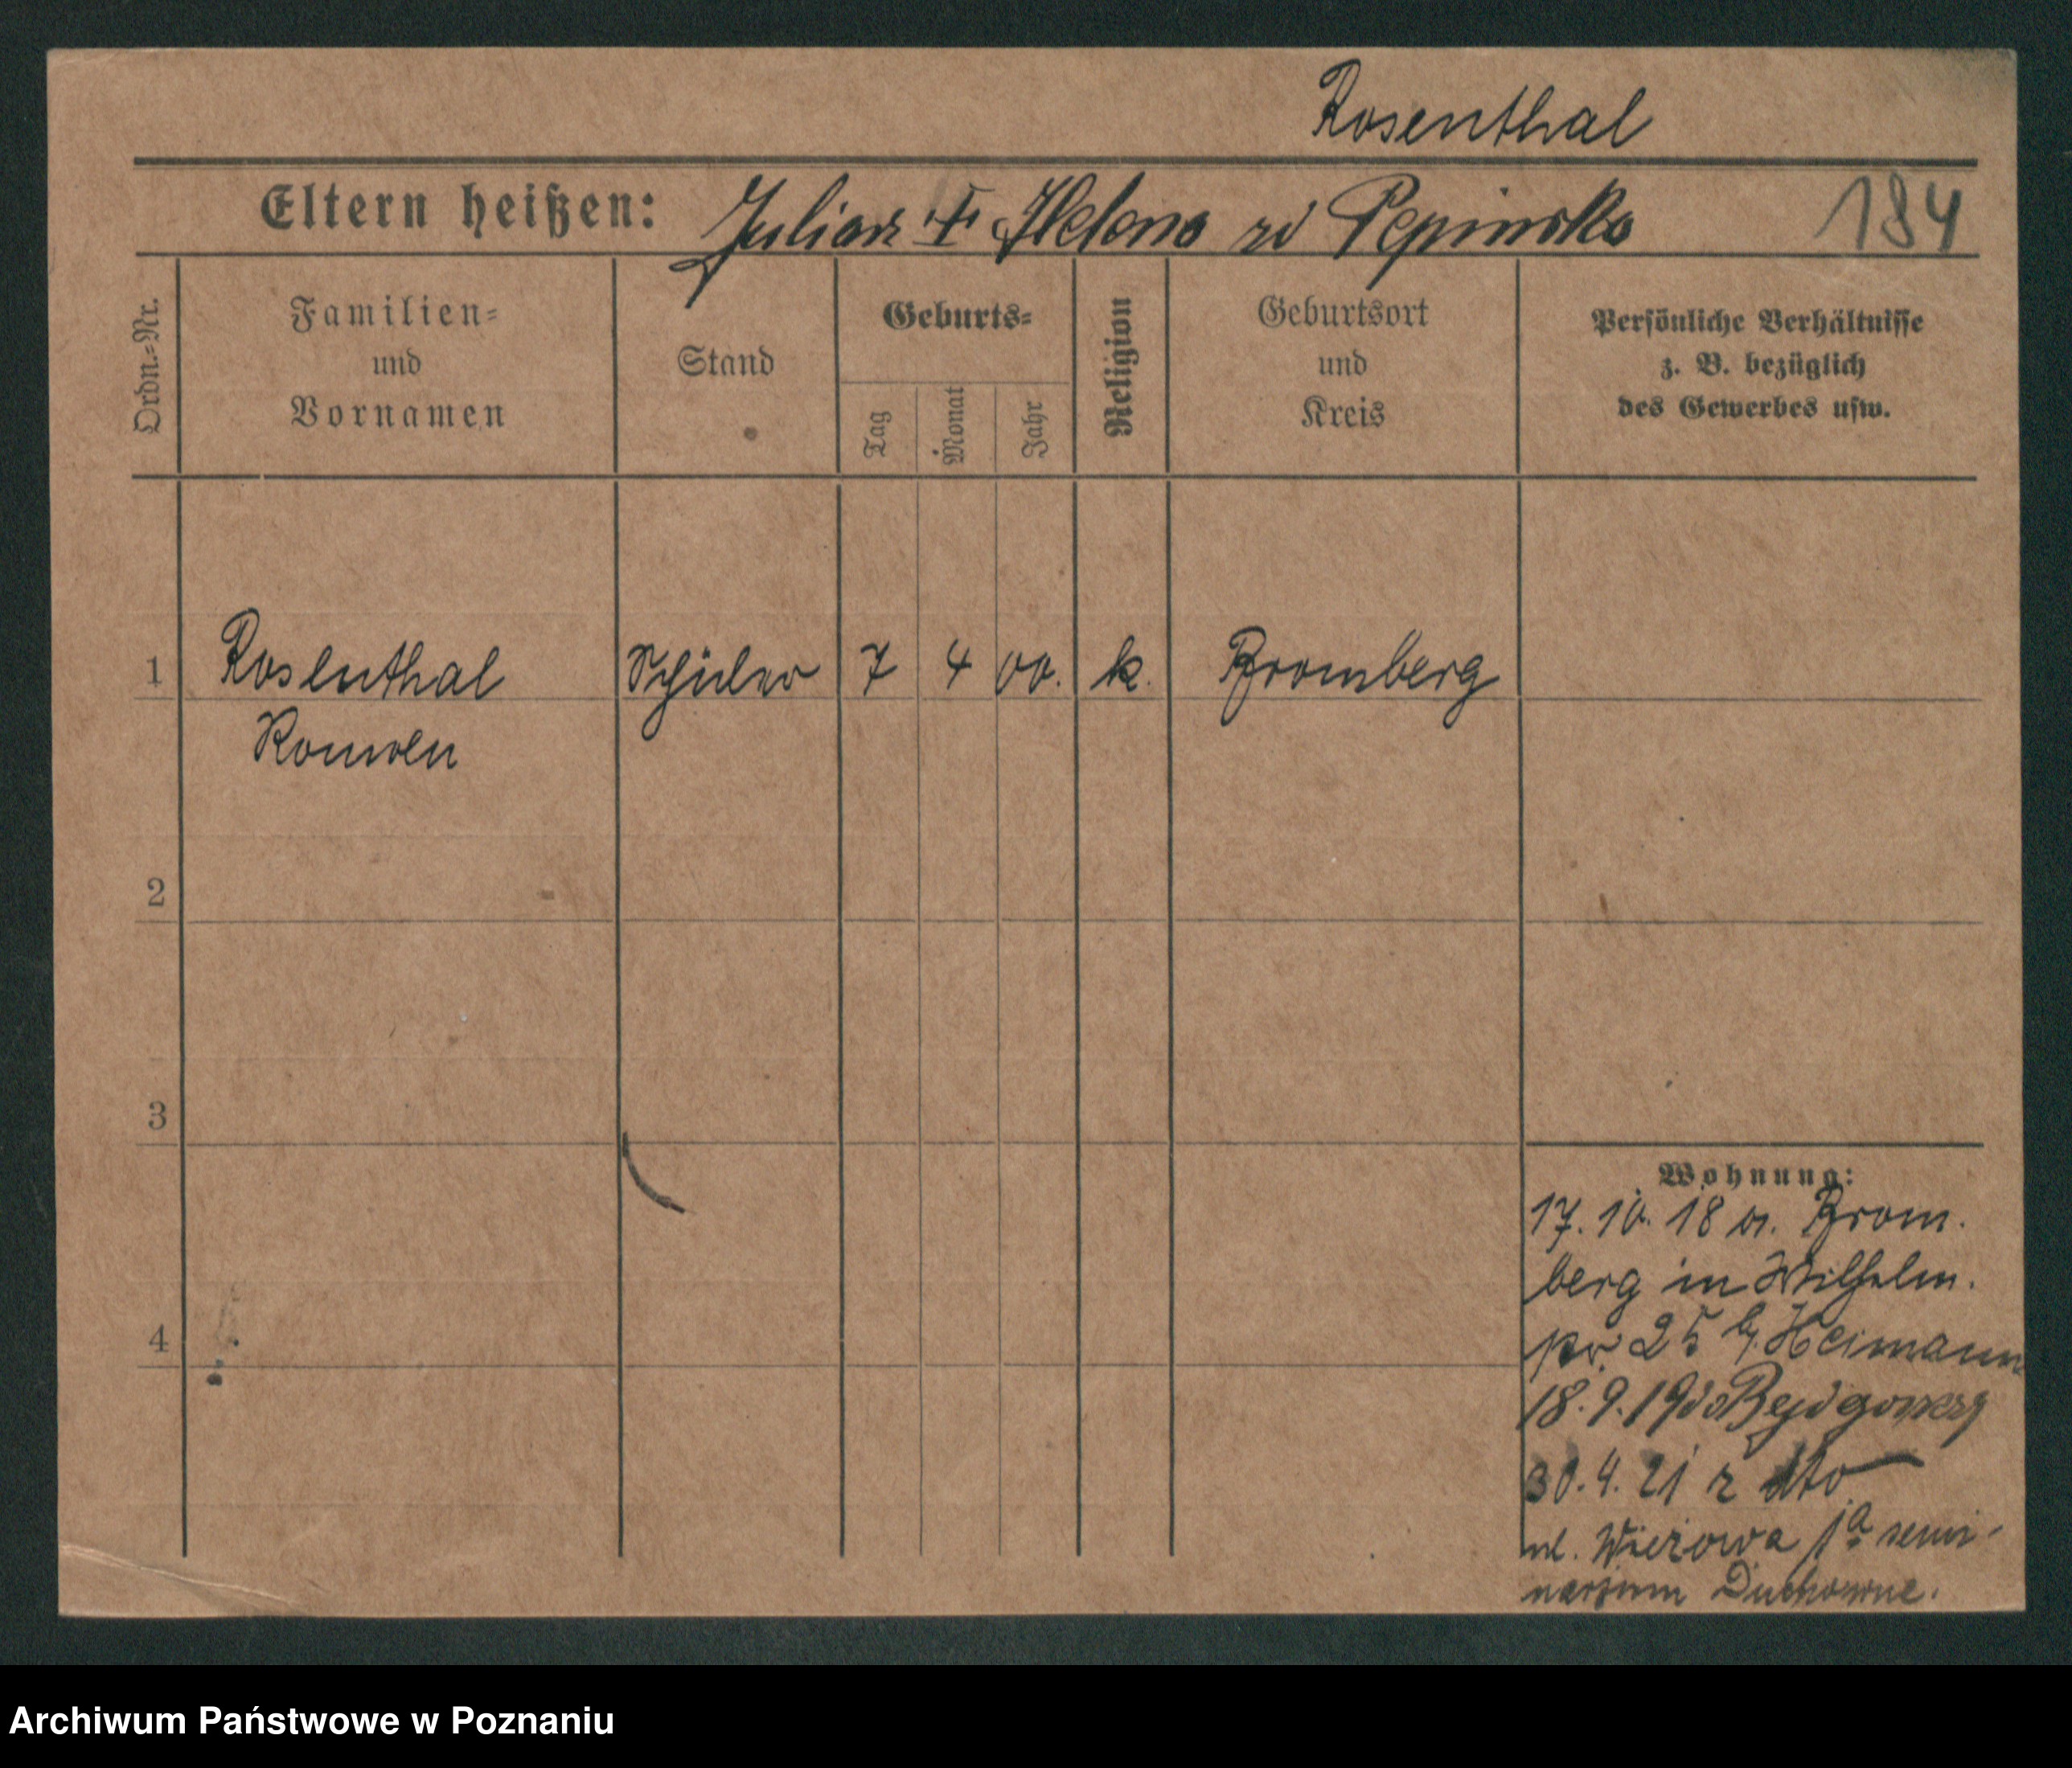 Rosenthal
Eltern heißen: Julian + Helena zd Pepinska 184
Ordn.=Nr.
Familien=
und
Vornamen
Stand
Geburts=
Tag
Monat
Jahr
Religion
Geburtsort
und
Kreis
Persönliche Verhältnisse
z. B. bezüglich
des Gewerbes usw.
1 Rosenthal Schüler 7 4 00. k. Bromberg
Roman
2
3
4
Wohnung:
17. 10. 18 a. Brom.
berg in Wilhelm.
25 b/ Heimann
18. 9. 19 do
30. 4. 21 z dto
ul. Wieżowa 1a semi-
narjum Duchowne.
Archiwum Państwowe w Poznaniu